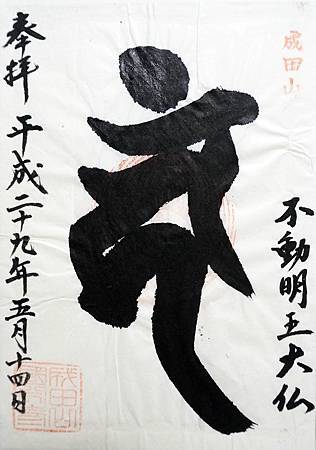 成田山
不動明王大仏
奉拝 平成二十九年五月十四日